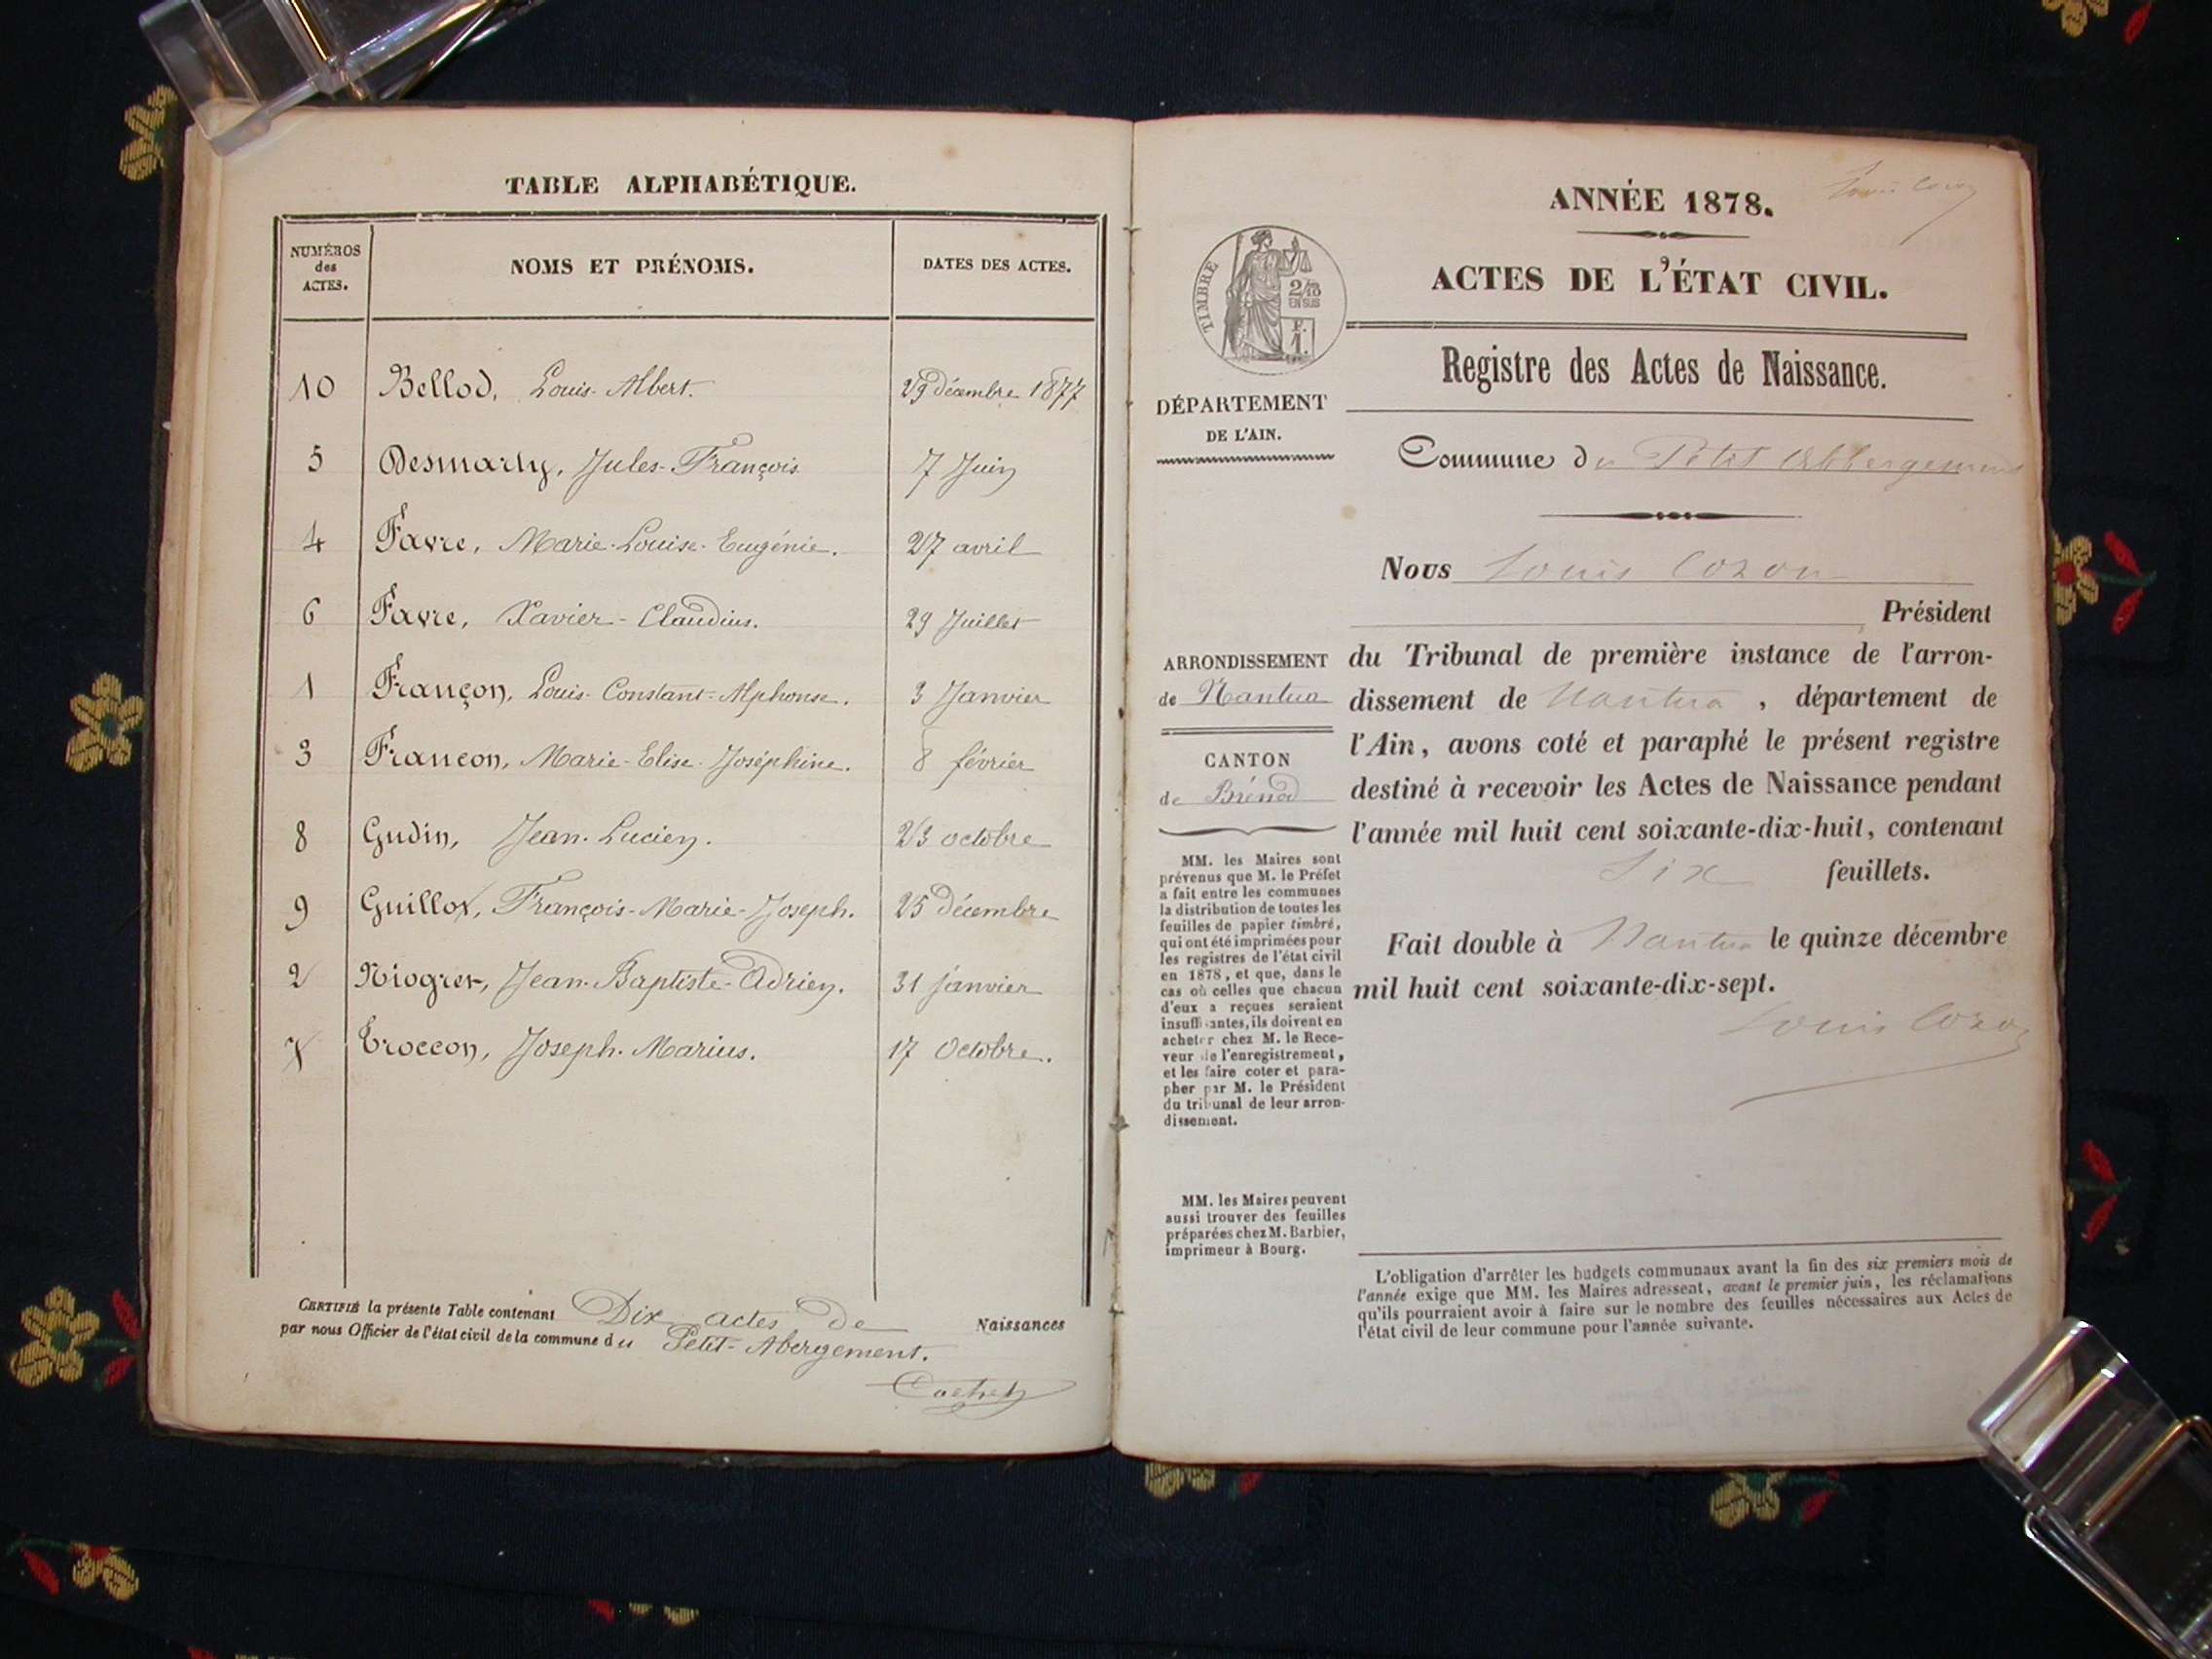 TABLE ALPHABÉTIQUE.
NUMÉROS
des
ACTES.
NOMS ET PRÉNOMS.
DATES DES ACTES.
10 Bellod, Louis-Albert. 29 décembre 1877
5 Desmarly, Jules-François 7 Juin
4 Favre, Marie-Louise-Eugénie. 27 avril
6 Favre, Xavier-Claudius. 29 Juillet
1 Françon, Louis-Constant-Alphonse. 3 Janvier
3 Francon, Marie-Elise-Joséphine. 8 février
8 Gudin, Jean-Lucien. 23 octobre
9 Guillot, François-Marie-Joseph. 25 décembre
2 Niogret, Jean-Baptiste-Adrien. 31 janvier
7 Troccon, Joseph-Marius. 17 Octobre.
CERTIFIÉ la présente Table contenant Dix actes de Naissances
par nous Officier de l'état civil de la commune du Petit-Abergement.
Louis Cozon
ANNÉE 1878.
ACTES DE L'ÉTAT CIVIL.
TIMBRE
2/10
EN SUS
F.
1.
Registre des Actes de Naissance.
DÉPARTEMENT
DE L'AIN.
Commune du Petit Abbergement
Nous Louis Cozon
Président
ARRONDISSEMENT
de Nantua
CANTON
de Brénod
du Tribunal de première instance de l'arron-
dissement de Nantua, département de
l'Ain, avons coté et paraphé le présent registre
destiné à recevoir les Actes de Naissance pendant
l'année mil huit cent soixante-dix-huit, contenant
Six feuillets.
Fait double à Nantua le quinze décembre
mil huit cent soixante-dix-sept.
Louis Cozon
MM. les Maires sont
prévenus que M. le Préfet
a fait entre les communes
la distribution de toutes les
feuilles de papier timbré,
qui ont été imprimées pour
les registres de l'état civil
en 1878, et que, dans le
cas où celles que chacun
d'eux a reçues seraient
insuffisantes, ils doivent en
acheter chez M. le Rece-
veur de l'enregistrement,
et les faire coter et para-
pher par M. le Président
du tribunal de leur arron-
dissement.
MM. les Maires peuvent
aussi trouver des feuilles
préparées chez M. Barbier,
imprimeur à Bourg.
L'obligation d'arrêter les budgets communaux avant la fin des six premiers mois de
l'année exige que MM. les Maires adressent, avant le premier juin, les réclamations
qu'ils pourraient avoir à faire sur le nombre des feuilles nécessaires aux Actes de
l'état civil de leur commune pour l'année suivante.